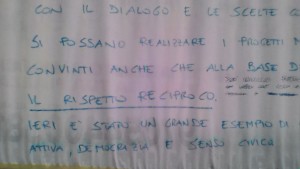 CON IL DIALOGO E LE SCELTE
SI POSSANO REALIZZARE I PROGETTI
CONVINTI ANCHE CHE ALLA BASE
IL RISPETTO RECIPROCO.
IERI E' STATO UN GRANDE ESEMPIO DI
ATTIVA, DEMOCRAZIA E SENSO CIVICO